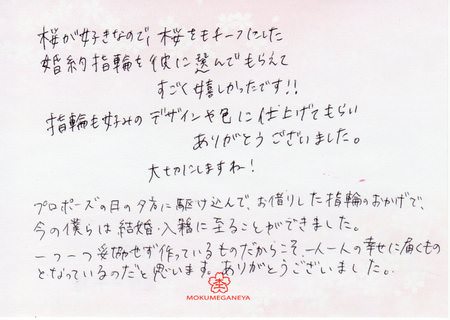 桜が好きなので、桜をモチーフにした
婚約指輪を彼に選んでもらえて
すごく嬉しかったです!!
指輪も好みのデザインや色に仕上げてもらい
ありがとうございました。
大切にしますね!
プロポーズの日の夕方に駆け込んで、お借りした指輪のおかげで、
今の僕らは結婚・入籍に至ることができました。
一つ一つ妥協せず作っているものだからこそ、一人一人の幸せに届くもの
となっているのだと思います。ありがとうございました。
MOKUMEGANEYA